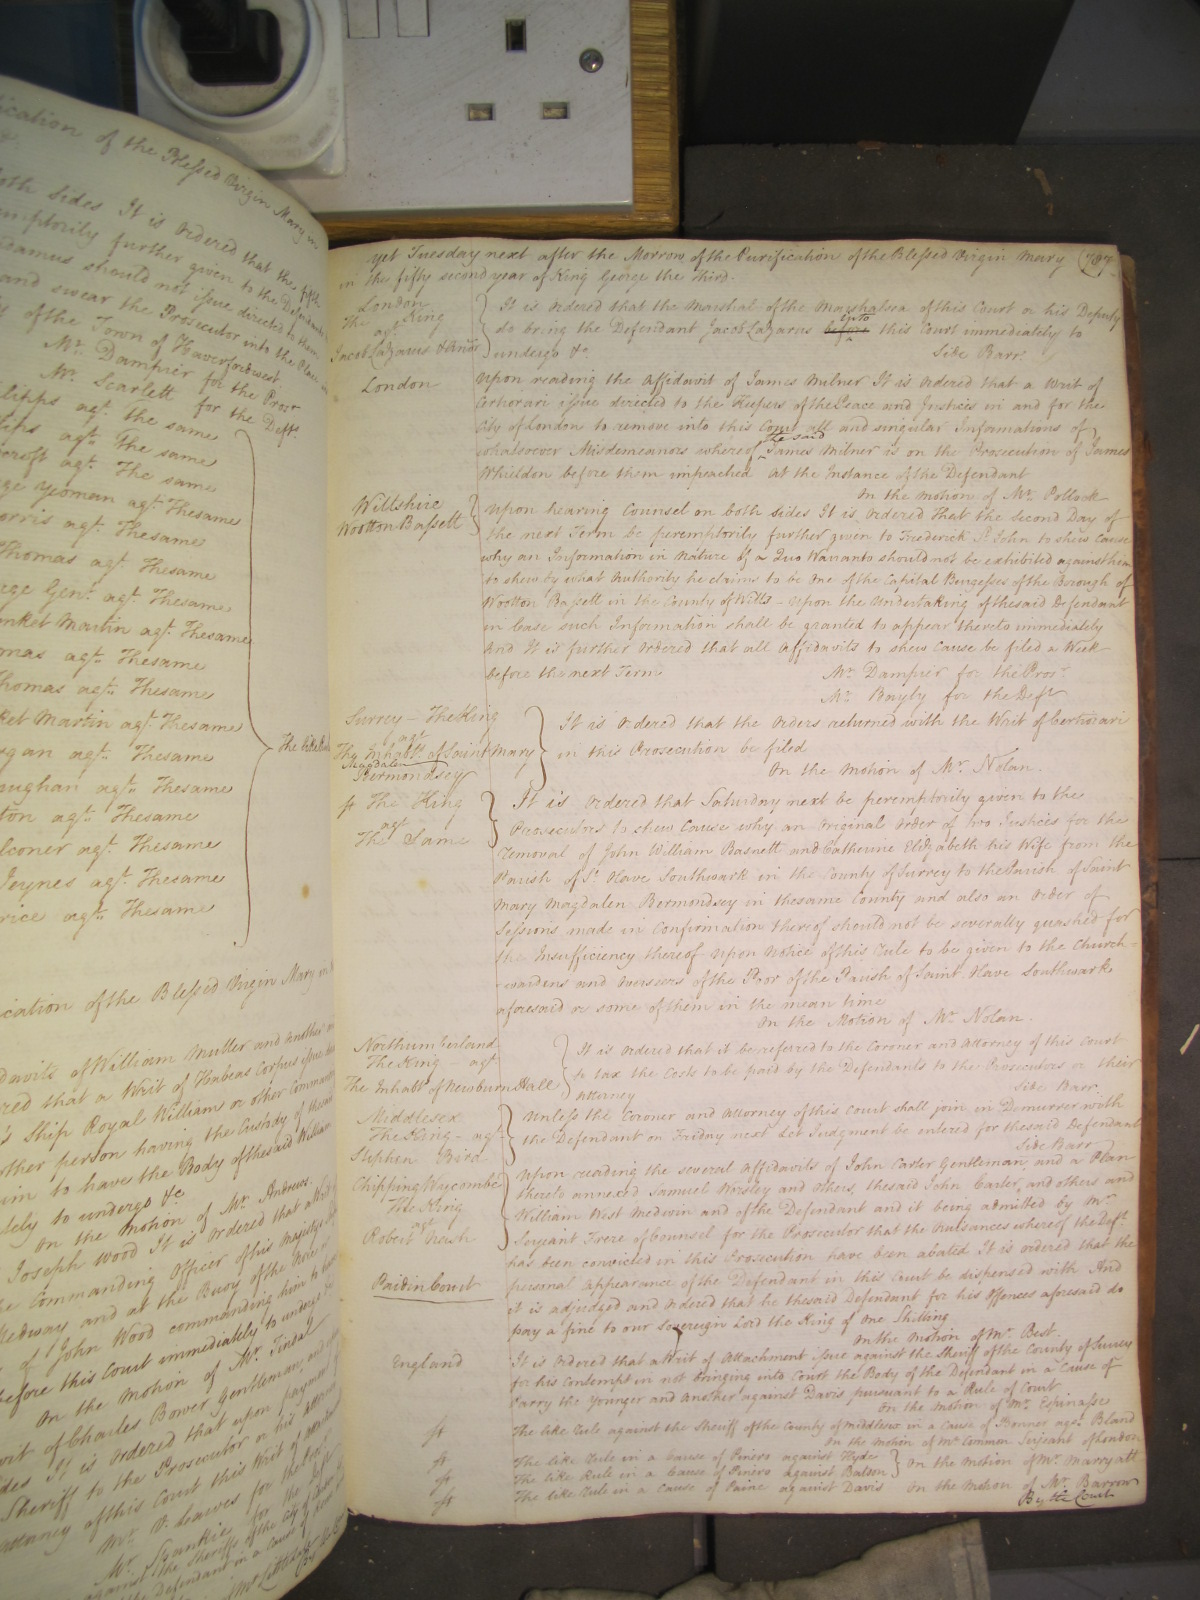 ication of the Blessed Virgin Mary in
both sides It is Ordered that the fifth
emptorily further given to the Defendants
damus should not issue directed to them
and swear the Prosecutor into the Place
of the Town of Haverfordwest
Mr. Dampier for the Prosr
Mr. Scarlett for the Deft.
lipps agt. the same
agt. The same
croft agt. The same
ge Yeoman agt. Thesame
orris agt. Thesame
Thomas agt. Thesame
ege Gent. agt. Thesame
nket Martin agt. Thesame
mas agt. Thesame
homas agt. Thesame
ket Martin agt. Thesame
rgan agt. Thesame
The like Rule
aughan agt. Thesame
ton agt. Thesame
lconer agt. Thesame
Jeynes agt. Thesame
rice agt. Thesame
ication of the Blessed Virgin Mary in
davits of William Muller and another
red that a Writ of Habeas Corpus issue
's Ship Royal William or other Commander
other person having the Custody of the said
him to have the Body of the said William
tely to undergo &c
On the motion of Mr. Andrews.
Joseph Wood It is Ordered that a
e Commanding Officer of his Majestys
Medway and at the Buoy of the Nore
of John Wood commanding him to have
before this Court immediately to undergo &c
On the motion of Mr. Tindal
avit of Charles Bower Gentleman, and
des It is Ordered that upon payment
Sheriff to the Prosecutor or his
attorney of this Court this Writ of
Mr. V. Lawes for the
Mr. Spankie for the Deft
against the Sheriffs of the City of
the Defendant in a cause of
Mr Littledale
By the Court
yet Tuesday next after the Morrow of the Purification of the Blessed Virgin Mary 787
in the fifty second year of King George the Third.
London
The King
agt
Jacob Lazarus & Anor
It is Ordered that the Marshal of the Marshalsea of this Court or his Deputy
do bring the Defendant Jacob Lazarus before up to this Court immediately to
undergo &c. Side Barr.
London
Upon reading the Affidavit of James Milner It is Ordered that a Writ of
Certiorari issue directed to the Keepers of the Peace and Justices in and for the
City of London to remove into this Court all and singular Informations of
whatsoever Misdemeanors whereof the said James Milner is on the Prosecution of James
Whieldon before them impeached at the Instance of the Defendant
On the motion of Mr. Pollock
Wiltshire
Wootton Bassett
Upon hearing Counsel on both sides It is Ordered That the Second Day of
the next Term be peremptorily further given to Frederick St. John to shew cause
why an Information in Nature of a Quo Warranto should not be exhibited against him
to shew by what Authority he claims to be One of the Capital Burgesses of the Borough of
Wootton Bassett in the County of Wilts - Upon the Undertaking of the said Defendant
in Case such Information shall be granted to appear thereto immediately
And It is further Ordered that all Affidavits to shew Cause be filed a Week
before the next Term Mr. Dampier for the Prosr.
Mr. Bayly for the Deft
Surrey - The King
agt
The Inhabts. of Saint Mary
Magdalen
Bermondsey
It is Ordered that the Orders returned with the Writ of Certiorari
in this Prosecution be filed
On the Motion of Mr. Nolan.
ss The King
agt
The Same
It is Ordered that Saturday next be peremptorily given to the
Prosecutors to shew Cause why an Original Order of two Justices for the
removal of John William Basnett and Catherine Elizabeth his Wife from the
Parish of St. Olave Southwark in the County of Surrey to the Parish of Saint
Mary Magdalen Bermondsey in the same County and also an Order of
Sessions made in Confirmation thereof should not be severally quashed for
the Insufficiency thereof Upon Notice of this Rule to be given to the Church-
-wardens and Overseers of the Poor of the Parish of Saint Olave Southwark
aforesaid or some of them in the mean time
On the Motion of Mr. Nolan.
Northumberland
The King - agt
The Inhabts of Newburn Hall
It is Ordered that it be referred to the Coroner and Attorney of this Court
to tax the Costs to be paid by the Defendants to the Prosecutors or their
Attorney Side Barr.
Middlesex
The King - agt
Stephen Bird
Unless the Coroner and Attorney of this Court shall join in Demurrer with
the Defendant on Friday next Let Judgment be entered for the said Defendant
Side Barr
Chipping Wycombe
The King
agt
Robert Nash
Paid in Court
Upon reading the several Affidavits of John Carter Gentleman, and a Plan
thereto annexed Samuel Worsley and Others, the said John Carter, and others and
William West Medwin and of the Defendant and it being admitted by Mr
Serjeant Frere of Counsel for the Prosecutor that the Nuisances whereof the Deft.
has been convicted in this Prosecution have been abated It is ordered that the
personal Appearance of the Defendant in this Court be dispensed with And
it is adjudged and Ordered that he the said Defendant for his Offences aforesaid do
pay a fine to our Sovereign Lord the King of One Shilling
On the Motion of Mr. Best.
England
It is Ordered that a Writ of Attachment issue against the Sheriff of the County of Surrey
for his Contempt in not bringing into Court the Body of the Defendant in a Cause of
Carry the Younger and Another against Davis pursuant to a Rule of Court
On the Motion of Mr. Espinasse
ss The like Rule against the Sheriff of the County of Middlesex in a Cause of Bonner agt. Bland
On the Motion of Mr. Common Serjeant of London
ss The like Rule in a Cause of Pinero against Hyde
ss The like Rule in a Cause of Pinero against Balson On the Motion of Mr. Marryatt
ss The like Rule in a Cause of Paine against Davis On the Motion of Mr. Barrow
By the Court